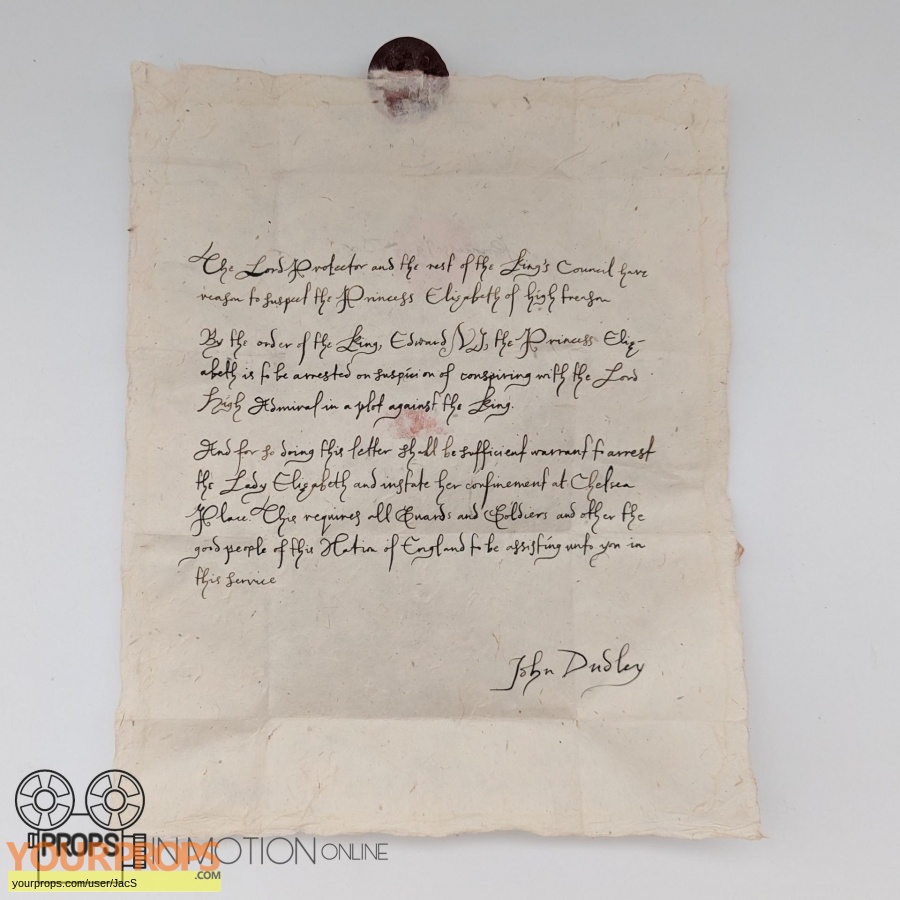 The Lord Protector and the rest of the King's Council have
reason to suspect the Princess Elizabeth of high treason
By the order of the King, Edward VI, the Princess Eliz-
abeth is to be arrested on suspicion of conspiring with the Lord
High Admiral in a plot against the King.
And for so doing this letter shall be sufficient warrant to arrest
the Lady Elizabeth and instate her confinement at Chelsea
Place. This requires all Guards and Soldiers and other the
good people of this Nation of England to be assisting unto you in
this service
John Dudley
PROPS
IN MOTION ONLINE
YOURPROPS
.COM
yourprops.com/user/JacS